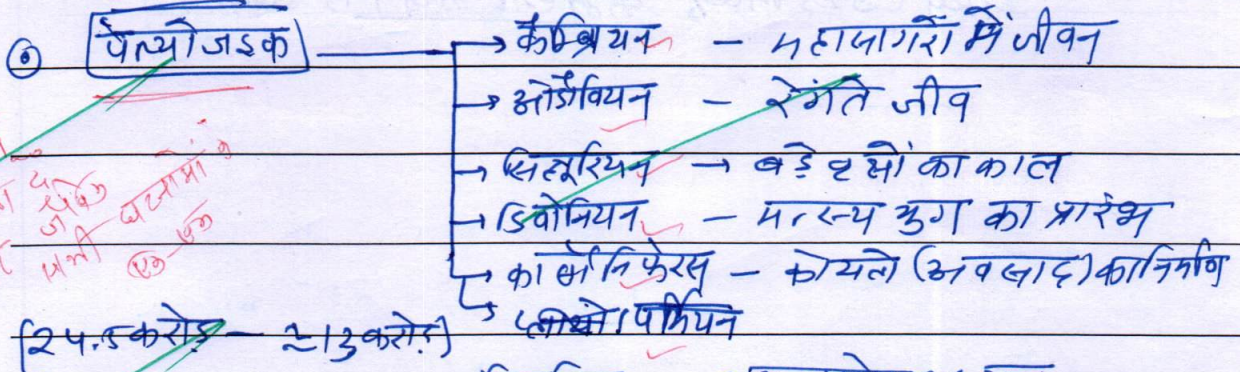 पेल्योजइक → कैम्ब्रियन – महासागरों में जीवन
→ ओर्डोवियन – रेंगते जीव
→ सिल्यूरियन → बड़े वृक्षों का काल
→ डिवोनियन – मत्स्य युग का प्रारंभ
→ कार्बोनिफेरस – कोयले (अवसाद) का निर्माण
→ पर्मियन
(24.5 करोड़ – ≈ 13 करोड़)